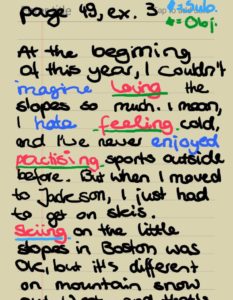 page 49, ex. 3
= Sub.
= Obj.
At the begining
of this year, I couldn't
imagine loving the
slopes so much. I mean,
I hate feeling cold,
and I've never enjoyed
practising sports outside
before. But when I moved
to Jackson, I just had
to get on skis.
Skiing on the little
slopes in Boston was
OK, but it's different
on mountain snow